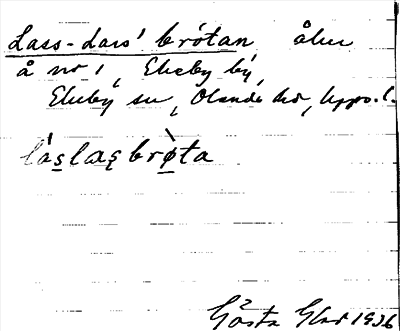 Lass-Lars' brótan, åker
å no 1, Ekeby by,
Ekeby sn, Olands hd, Upps. l.
làslaςbrø̀ta
Gösta  1936